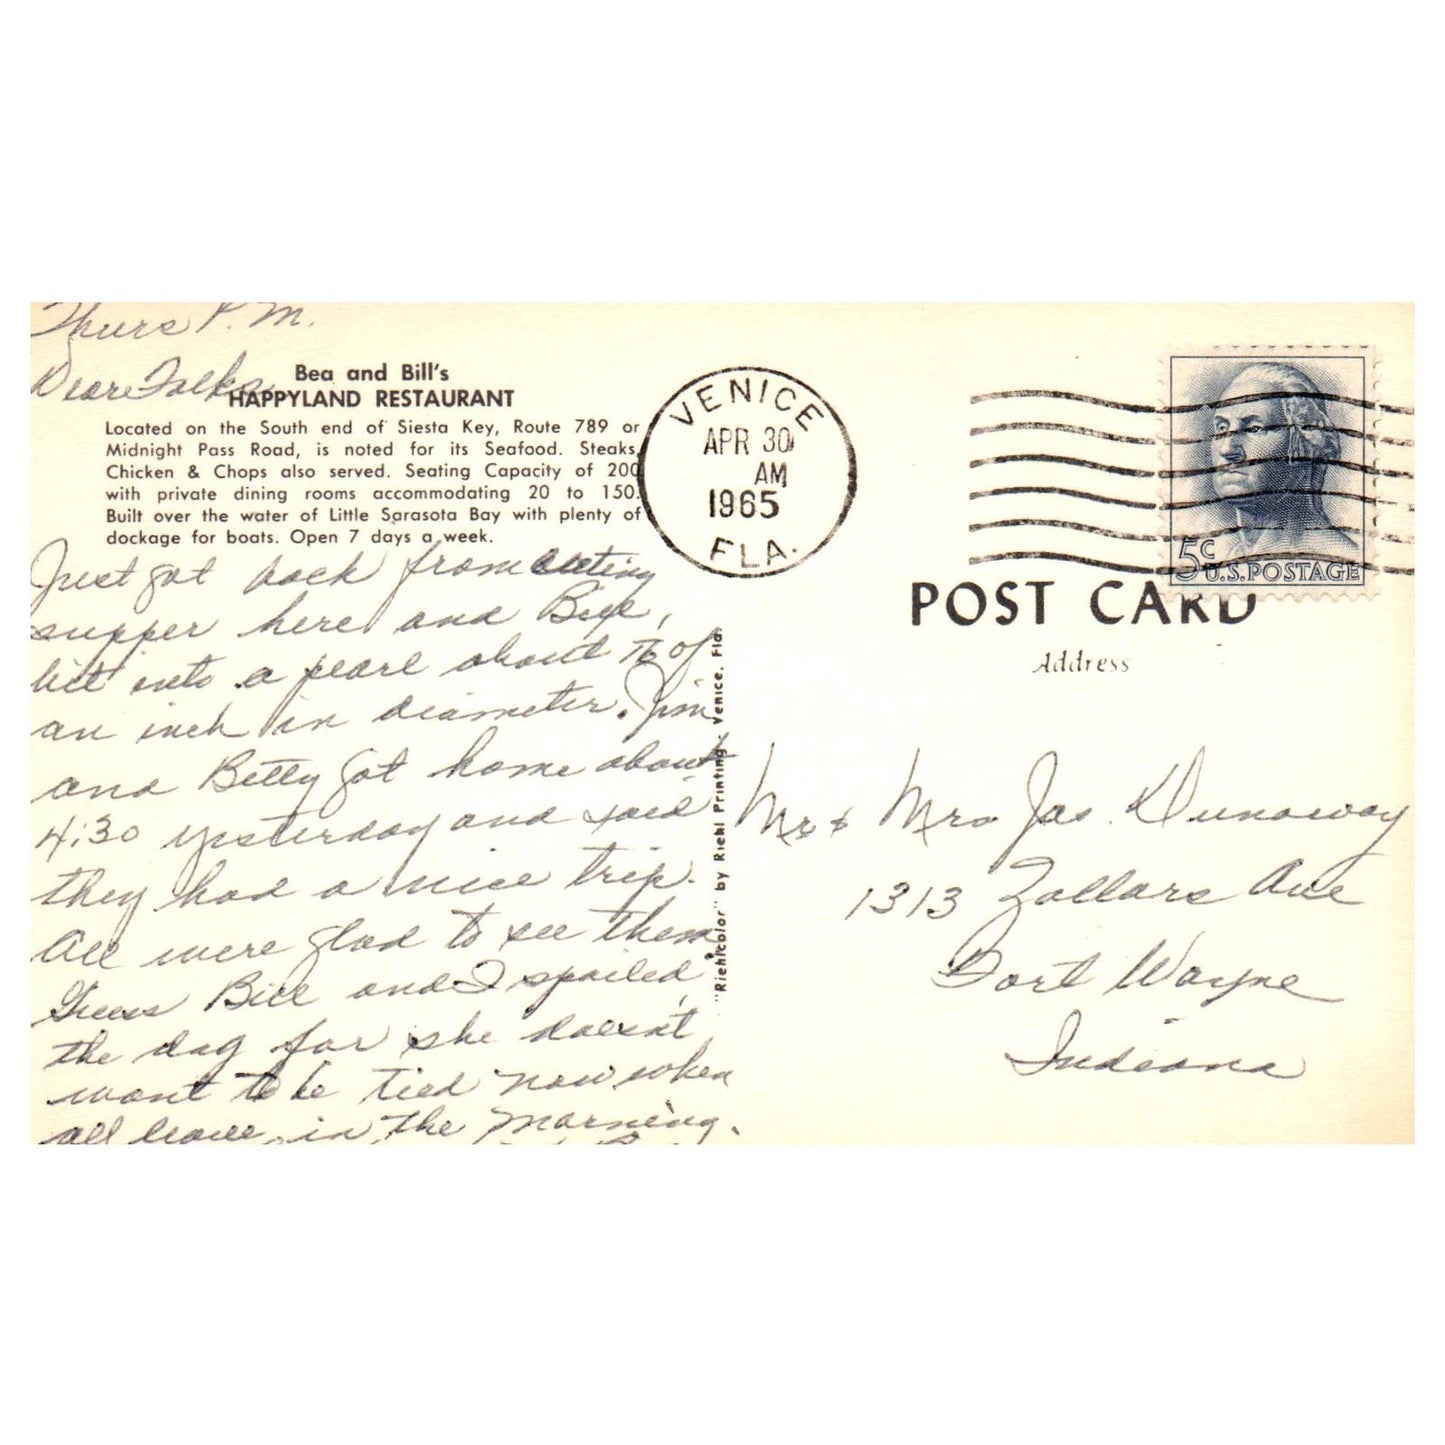 Thurs P.M.
Dear Folks
Bea and Bill's
HAPPYLAND RESTAURANT
Located on the South end of Siesta Key, Route 789 or
Midnight Pass Road, is noted for its Seafood. Steaks,
Chicken & Chops also served. Seating Capacity of 200
with private dining rooms accommodating 20 to 150.
Built over the water of Little Sarasota Bay with plenty of
dockage for boats. Open 7 days a week.
Just got back from eating
supper here and Bill,
bit into a pearl about of
an inch in diameter. Jim
and Betty got home about
4:30 yesterday and said
they had a nice trip.
All were glad to see them
Guess Bill and I spoiled
the dog for she doesn't
want to be tied now when
all leave in the morning.
"Riehlcolor" by Riehl Printing, Venice, Fla.
VENICE
APR 30
AM
1965
FLA.
5c
U.S. POSTAGE
POST CARD
Address
Mr & Mrs Jas. Dunaway
1313 Zollars Ave
Fort Wayne
Indiana